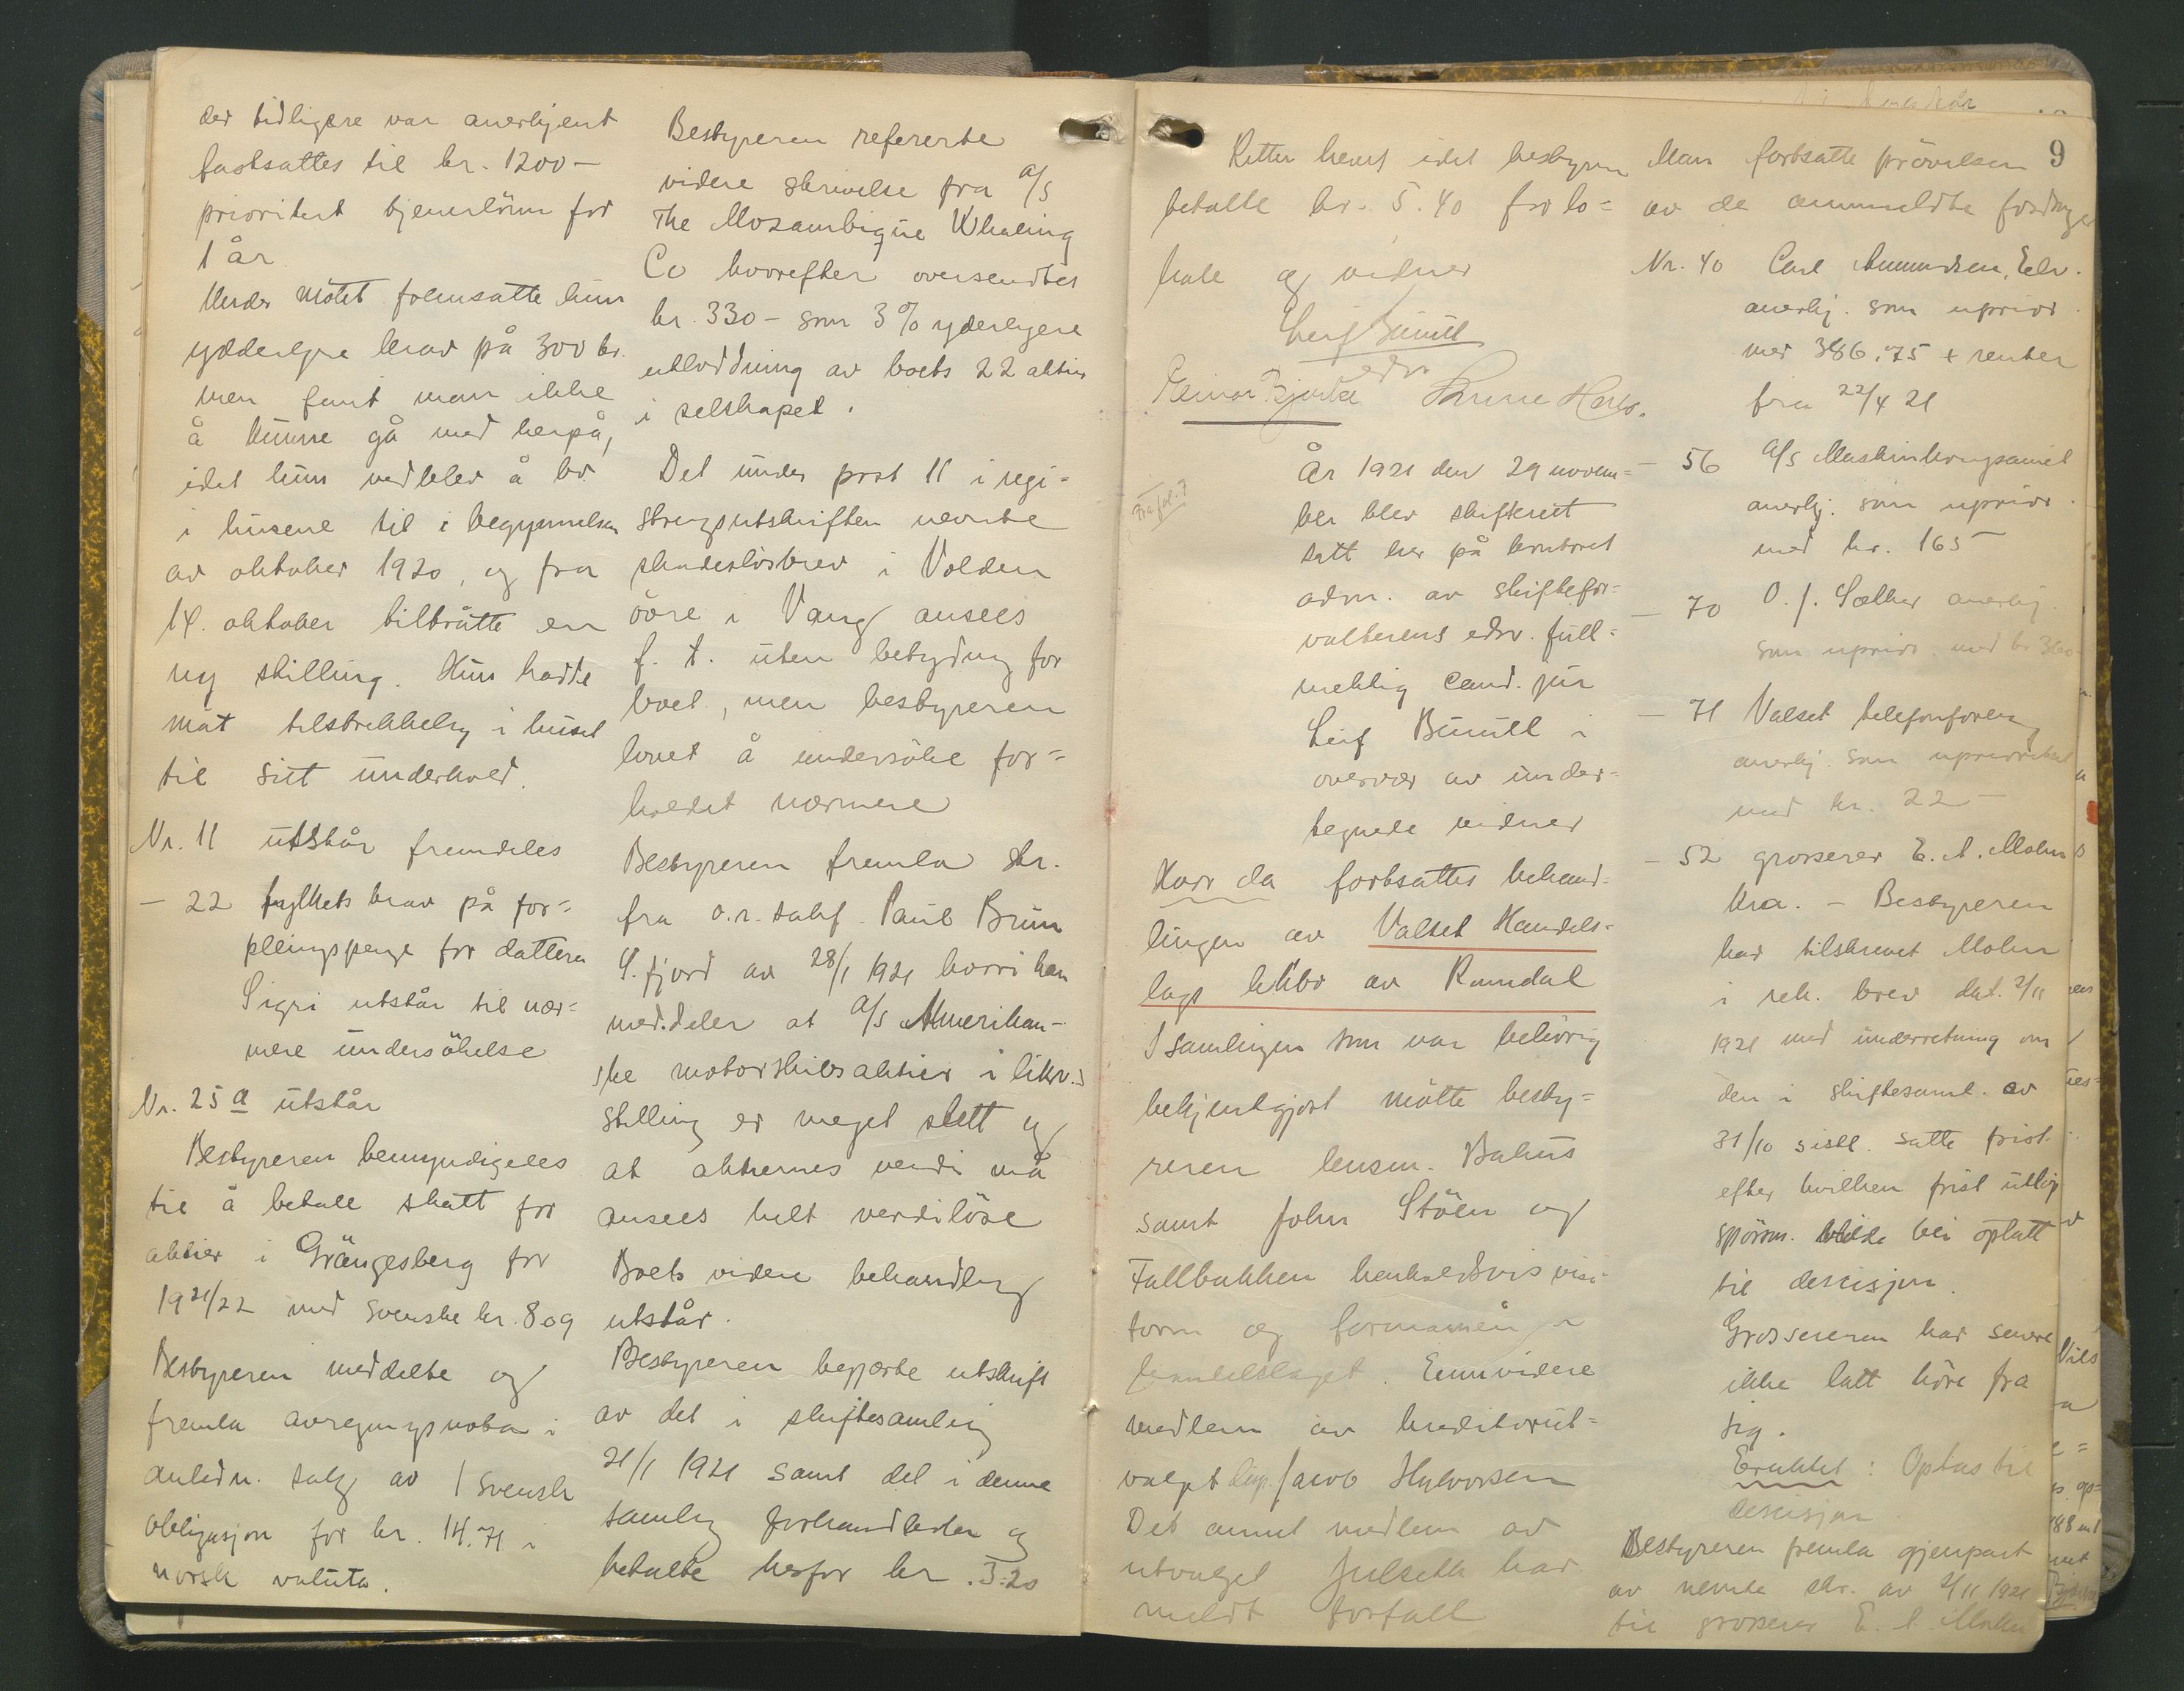 der tidligere var anerkjent
fastsattes til kr. 1200 —
prioritert tjenerlönn for
1 år
Under mötet fremsatte hun
ydderligere krav på 300 kr.
men fant man ikke
å kunne gå med herpå,
idet hun vedblev å bo
i husene til i begynnelsen
av oktober 1920, og fra
14. oktober tiltrådte en
ny stilling. Hun hadde
mat tilstrekkelig i huset
til sitt underhold.
Nr. 11 utstår fremdeles
— 22 fylkets krav på for=
pleiningspenge for datteren
Sigri utstår til nær=
mere undersökelse
Nr. 25 a utstår
Bestyreren bemyndigedes
til å betale skatt for
aktier i Grängesberg for
1921/22 med svenske kr. 809
Bestyreren meddelte og
fremla avregningsnota i
anledn. salg av 1 svensk
obligasjon for kr. 14.71 i
norsk valuta.
Bestyreren refererte
videre skrivelse fra A/S
The Mozambique Whaling
Co hvorefter oversendtes
kr. 330 — som 3 % yderligere
utlodning av boets 22 aktier
i selskapet.
Det under post 11 i regi=
streringsutskriften nevnte
skadeslösbrev i Volden
övre i Vang ansees
f. t. uten betydning for
boet, men bestyreren
lovet å undersöke for=
holdet nærmere
Bestyreren fremla skr.
fra o.r. sakf. Paul Brun
S. fjord av 28/1 1921 hvori han
meddeler at A/S Amerikan-
ske motorskibsaktier i likv.s
stilling er meget slett og
at aktiernes verdi må
ansees helt verdilöse
Boets videre behandling
utstår.
Bestyreren begjærte utskrift
av det i skiftesamling
21/1 1921 samt det i denne
samling forhandlede og
betalte herfor kr. 3.20
9
Retten hevet idet bestyreren
betalte kr. 5.40 for lo=
kale og vidner
Leif Bunill
edsv
Einar Bjerke
Fra fol. 7
År 1921 den 29 novem=
ber blev skifterett
satt her på kontoret
adm. av skiftefor=
valterens edsv. full=
mektig cand. jur
Leif Bunill i
overvær av under=
tegnede vidner
Hvor da fortsattes behand=
lingen av Valset Handels=
lags bo av Romedal
I samlingen som var behörig
bekjentgjort mötte besty=
reren lensm. Bakus
samt John Stöen og
Fallbakken henholdsvis revi-
torer og formannen i
handelslaget. Ennvidere
medlem av kreditorut=
valget Jacob Halvorsen
Det annet medlem av
utvalget Julseth har
meldt forfall
Man fortsatte prövelsen
av de anmeldte fordringer
Nr. 40 Carl Amundsen, Elv.
anerkj. som uprior.
med 386.75 + renter
fra 22/4 21
— 56 A/S Maskinkompaniet
anerkj. som uprior.
med kr. 165 —
— 70 O. J. Sæther anerkj.
som uprior. med kr 360
— 71 Valset telefonforening
anerkj. som uprioritert
med kr. 22 —
— 52 grosserer E. A. Mohn
Kra. — Bestyreren
har tilskrevet Mohn
i rek. brev dat. 2/11
1921 med underretning om
den i skiftesaml. av
31/10 sistl. satte frist
efter hvilken frist utlöp
spörsm. vilde bli optatt
til decisjon.
Grossereren har senere
ikke latt höre fra
sig.
Eraktet: Optas til
decisjon
Bestyreren fremla gjenpart
av nevnte skr. av 2/11 1921
til grosserer E. A. Mohn